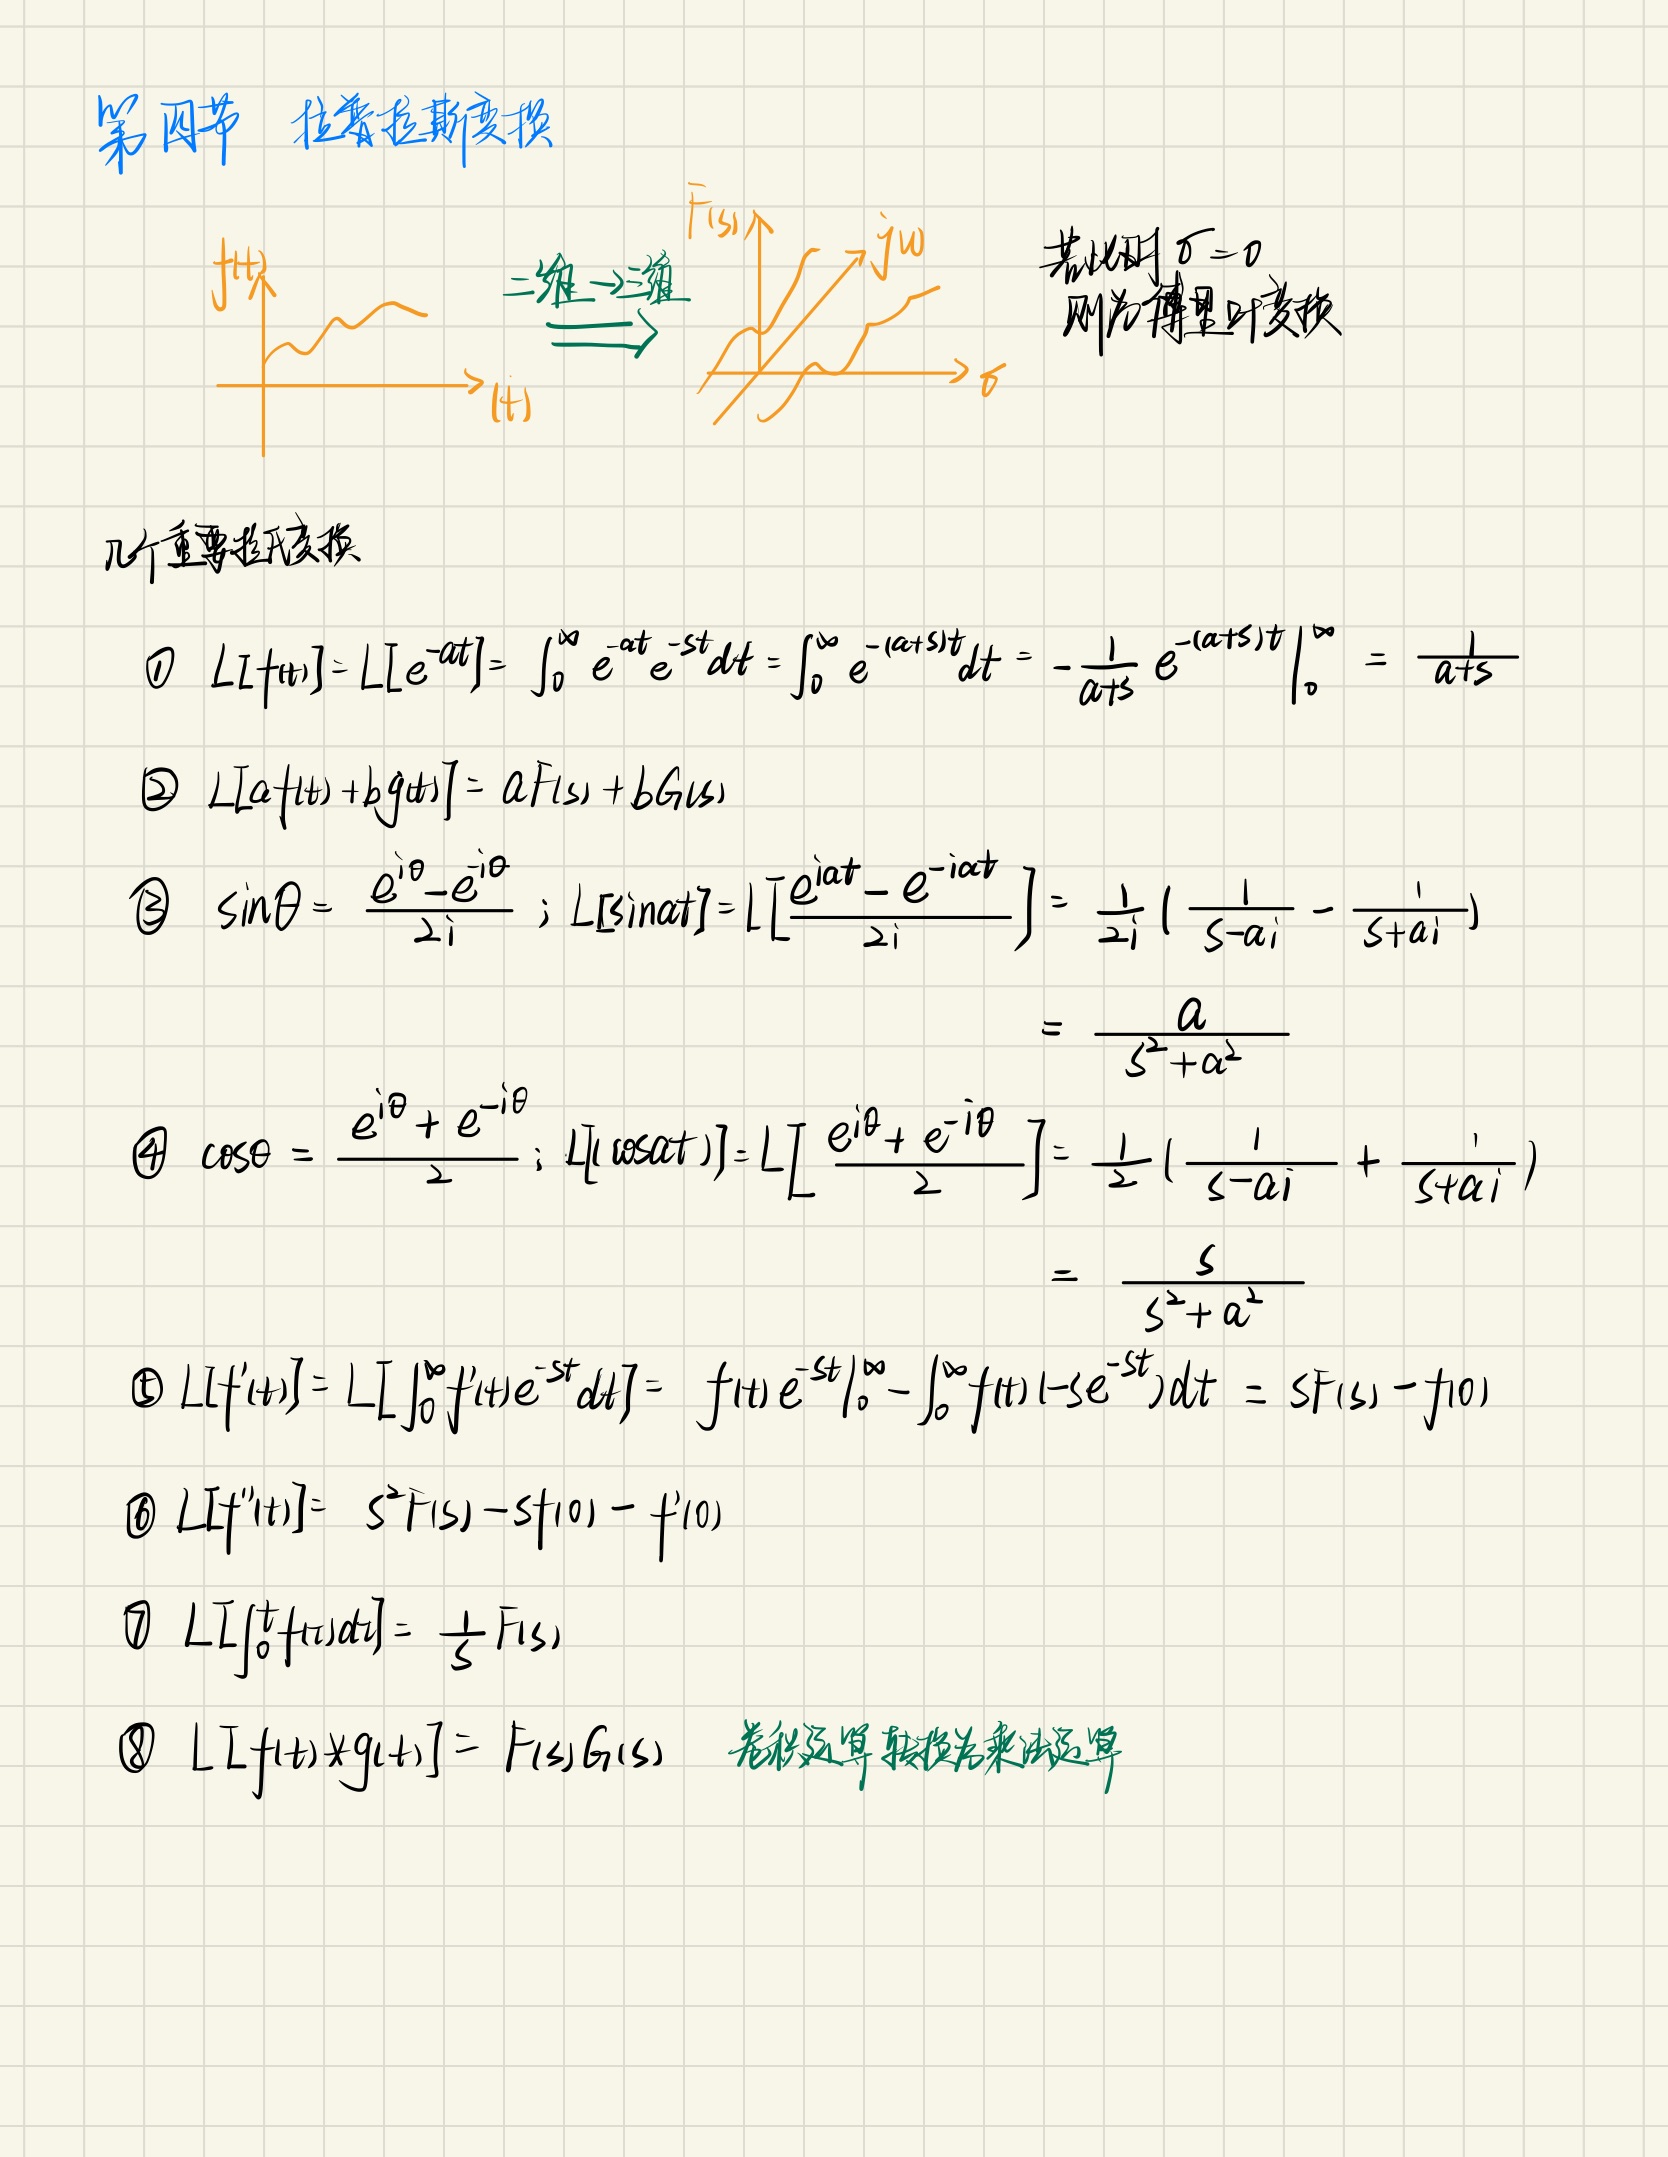 第四节 拉普拉斯变换
f(t)
(t)
二维→三维
F(s)
jω
σ
若此时 σ=0
则为傅里叶变换
几个重要拉氏变换
① L[f(t)]=L[e^{-at}]=∫_0^∞ e^{-at}e^{-st}dt=∫_0^∞ e^{-(a+s)t}dt=-\frac{1}{a+s} e^{-(a+s)t}|_0^∞ = \frac{1}{a+s}
② L[af(t)+bg(t)]=aF(s)+bG(s)
③ sinθ=\frac{e^{iθ}-e^{-iθ}}{2i}; L[sinat]=L[\frac{e^{iat}-e^{-iat}}{2i}]=\frac{1}{2i}(\frac{1}{s-ai}-\frac{1}{s+ai})
=\frac{a}{s^2+a^2}
④ cosθ=\frac{e^{iθ}+e^{-iθ}}{2}; L[(cosat)]=L[\frac{e^{iθ}+e^{-iθ}}{2}]=\frac{1}{2}(\frac{1}{s-ai}+\frac{1}{s+ai})
=\frac{s}{s^2+a^2}
⑤ L[f'(t)]=L[∫_0^∞ f'(t)e^{-st}dt]=f(t)e^{-st}|_0^∞-∫_0^∞ f(t)(-se^{-st})dt=sF(s)-f(0)
⑥ L[f''(t)]=s^2F(s)-sf(0)-f'(0)
⑦ L[∫_0^t f(τ)dτ]=\frac{1}{s}F(s)
⑧ L[f(t)*g(t)]=F(s)G(s) 卷积运算转换为乘法运算